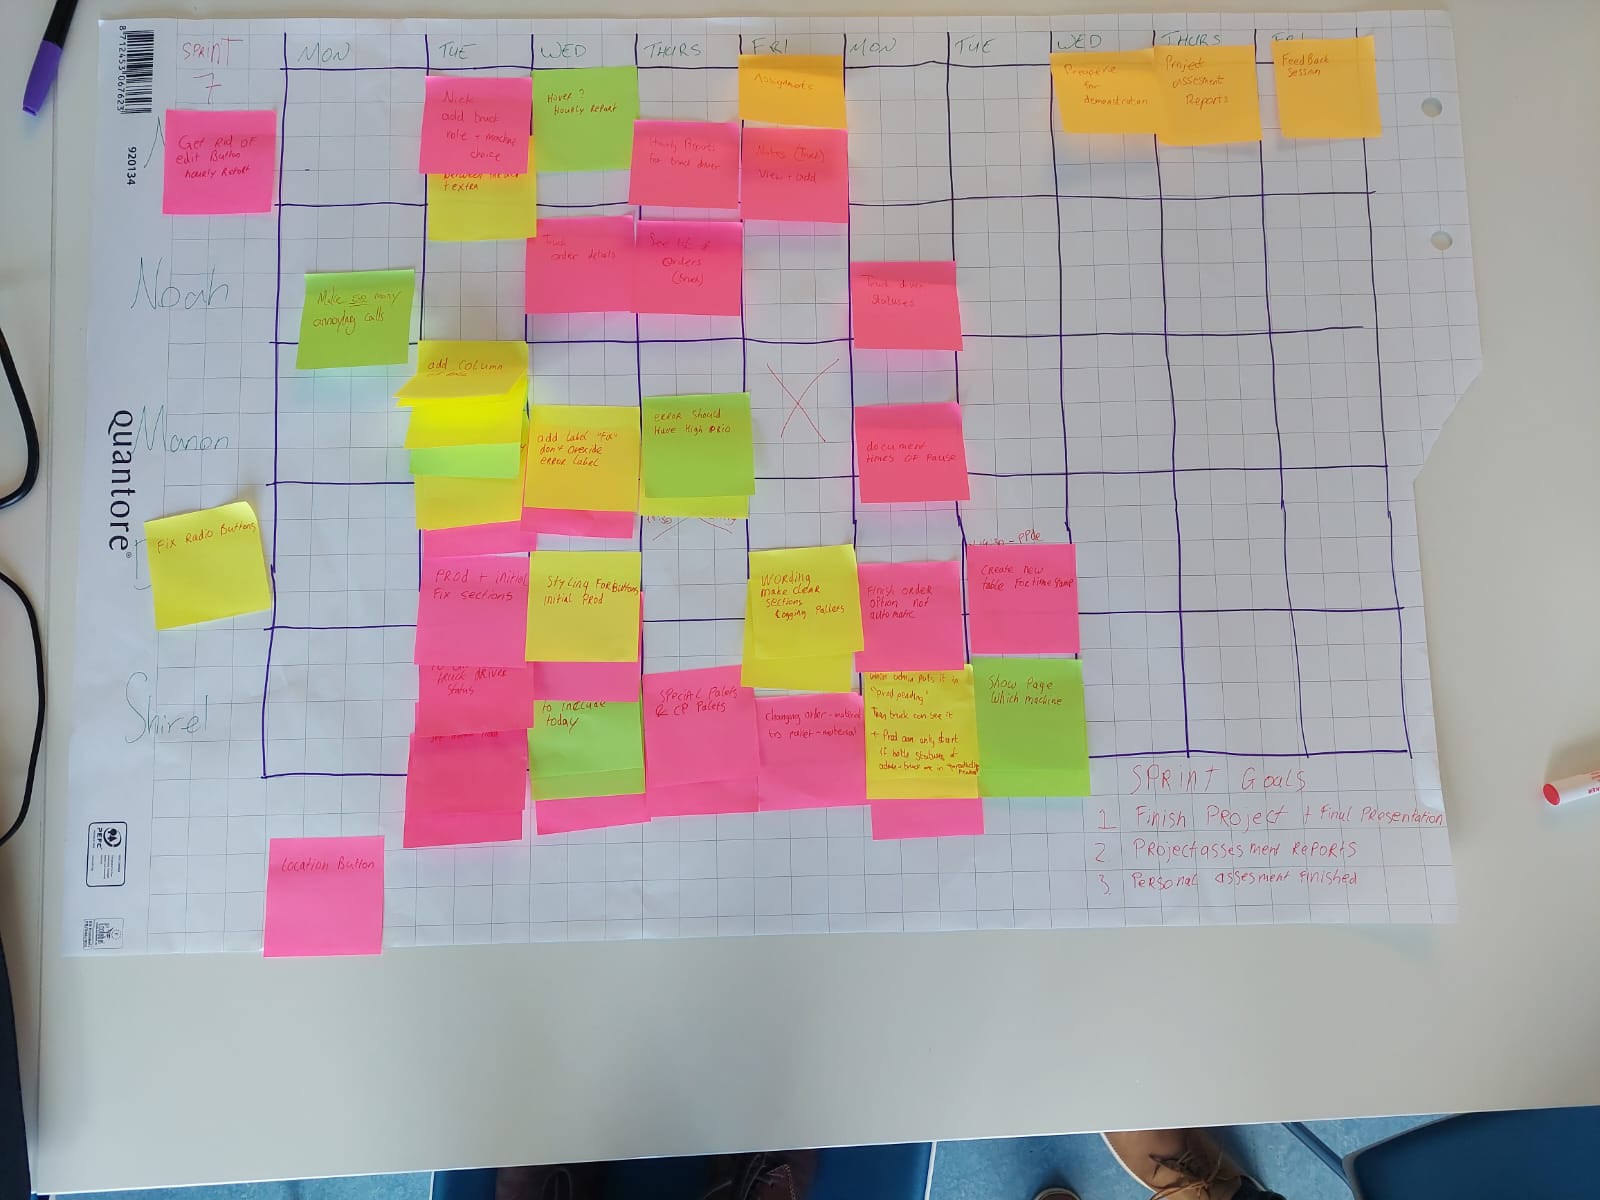 SPRINT
7
MON
TUE
WED
THURS
FRI
MON
TUE
WED
THURS
FRI
8712453067623
920134
Quantore®
PEFC
Noah
Manon
Shirel
Get Rid of
edit Button
hourly Report
Nick
add truck
role + machine
choice
+ extra
Hover?
Hourly Report
Hourly Reports
for truck driver
Assignments
Notes (Truck)
View + add
Prepare
for
demonstration
Project
assesment
Reports
FeedBack
Session
Make so many
annoying calls
Truck
order details
See list of
Orders
(truck)
Truck driver
Statuses
add Column
add Label "Fix"
don't Override
error Label
error Should
Have High Prio
document
times of Pause
Fix Radio Buttons
Prod + initial
Fix sections
Styling For Buttons
initial Prod
Wording
make clear
sections
Logging Pallets
Finish order
option not
automatic
Create new
table For time
truck driver
status
to include
today
Special Palets
& CP Palets
changing order-material
to pallet-material
When admin puts it in
"prod pending"
Then truck can see it
+ Prod can only start
if both Statuses of
Show Page
Which machine
Location Button
Sprint Goals
1 Finish Project + Final Presentation
2 Project assesment Reports
3. Personal assesment Finished